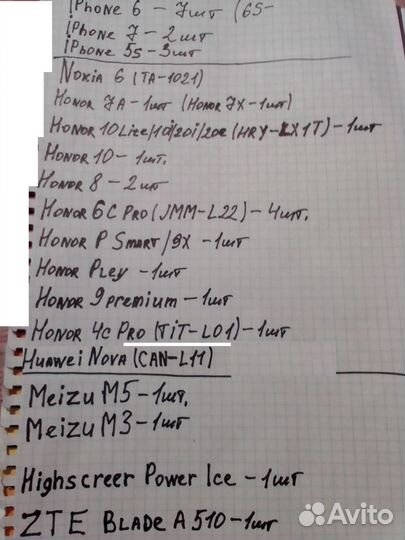 iPhone 6 - 7шт (6S-
iPhone 7 - 2шт
iPhone 5s - 3шт
Nokia 6 (TA-1021)
Honor 7A - 1шт (Honor 7X - 1шт)
Honor 10Lite/10i/20i/20e (HRY-LX1T) - 1шт
Honor 10 - 1шт.
Honor 8 - 2шт
Honor 6C Pro (JMM-L22) - 4шт.
Honor P Smart/9X - 1шт
Honor Pley - 1шт
Honor 9 premium - 1шт
Honor 4c Pro (TiT-L01) - 1шт
Huawei Nova (CAN-L11)
Meizu M5 - 1шт.
Meizu M3 - 1шт
Highscreer Power Ice - 1шт
ZTE Blade A510 - 1шт
Avito